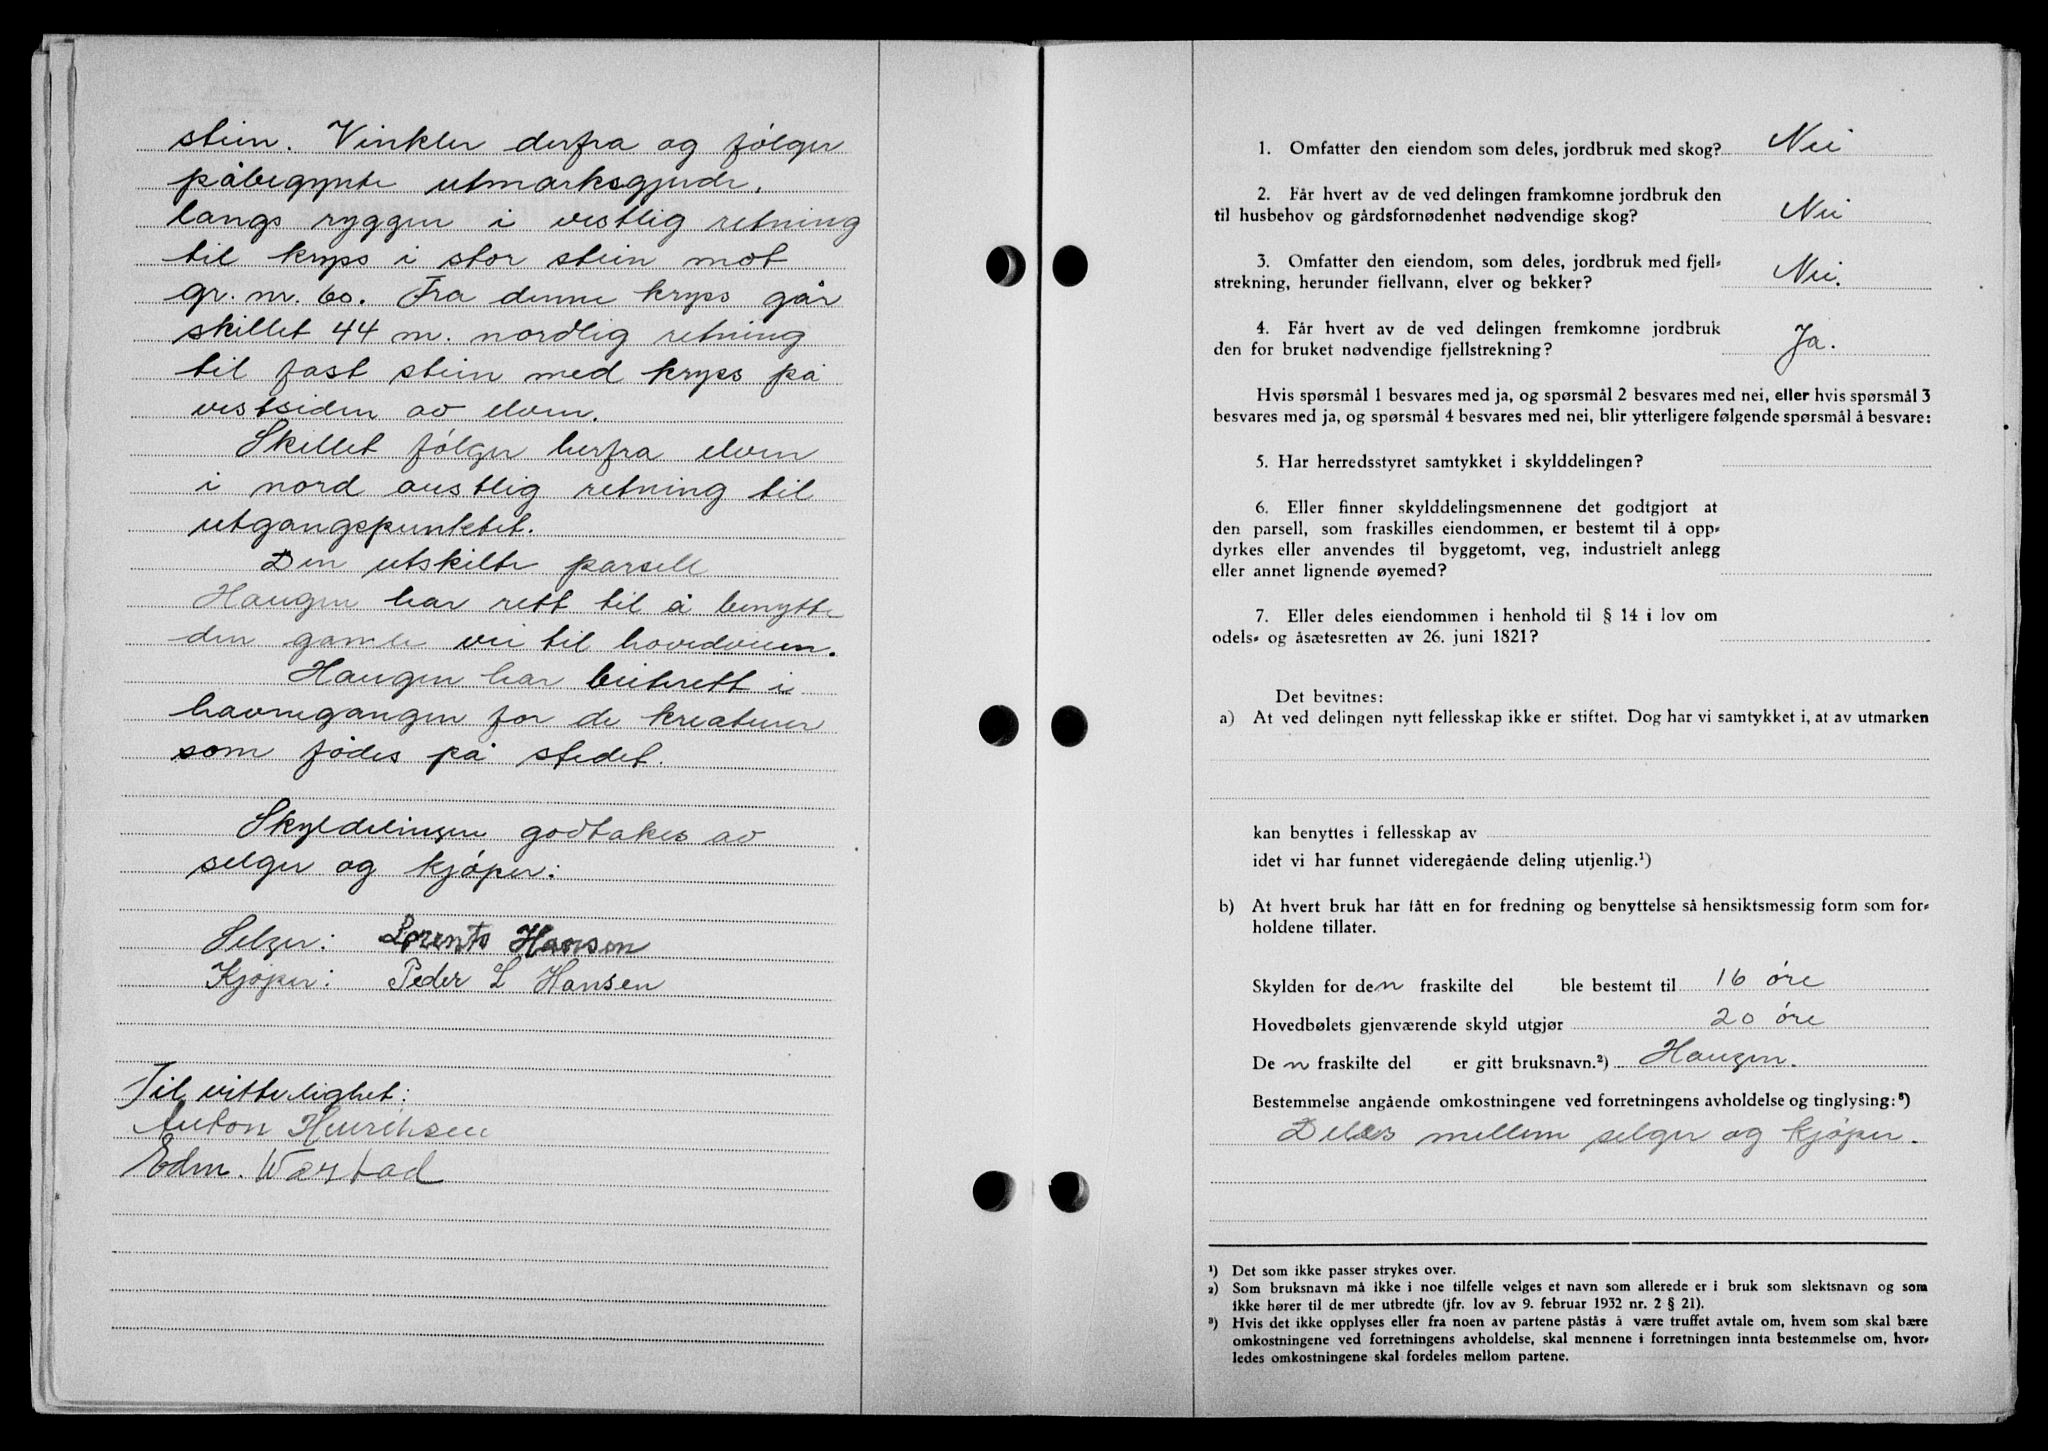 stein. Vinkler derfra og følger
påbegynte utmarksgjerde,
langs ryggen i vestlig retning
til kryss i stor stein mot
gr. nr. 60. Fra denne kryss går
skillet 44 m. nordlig retning
til fast stein med kryss på
vestsiden av elven.
Skillet følger herfra elven
i nord austlig retning til
utgangspunktet.
Den utskilte parsell
Haugen har rett til å benytte
den gamle vei til hovedveien.
Haugen har beiterett i
havnegangen for de kreaturer
som fødes på stedet.
Skyldelingen godtakes av
selger og kjøper:
Selger: Lorents Hansen
Kjøper: Peder L Hansen
Til vitterlighet:
Anton Henriksen
Edm. Værstad
1. Omfatter den eiendom som deles, jordbruk med skog? Nei
2. Får hvert av de ved delingen framkomne jordbruk den
til husbehov og gårdsfornødenhet nødvendige skog? Nei
3. Omfatter den eiendom, som deles, jordbruk med fjell-
strekning, herunder fiellvann, elver og bekker? Nei.
4. Får hvert av de ved delingen fremkomne jordbruk
den for bruket nødvendige fjellstrekning? Ja.
Hvis spørsmål 1 besvares med ja, og spørsmål 2 besvares med nei, eller hvis spørsmål 3
besvares med ja, og spørsmål 4 besvares med nei, blir ytterligere følgende spørsmål å besvare:
5. Har herredsstyret samtykket i skylddelingen?
6. Eller finner skylddelingsmennene det godtgjort at
den parsell, som fraskilles eiendommen, er bestemt til å opp-
dyrkes eller anvendes til byggetomt, veg, industrielt anlegg
eller annet lignende øyemed?
7. Eller deles eiendommen i henhold til § 14 i lov om
odels- og åsætesretten av 26. juni 1821?
Det bevitnes:
a) At ved delingen nytt fellesskap ikke er stiftet. Dog har vi samtykket i, at av utmarken
kan benyttes i fellesskap av
idet vi har funnet videregående deling utjenlig.¹)
b) At hvert bruk har fått en for fredning og benyttelse så hensiktsmessig form som for-
holdene tillater.
Skylden for den fraskilte del ble bestemt til 16 øre
Hovedbølets gjenværende skyld utgjør 20 øre
Den fraskilte del er gitt bruksnavn.²) Haugen.
Bestemmelse angående omkostningene ved forretningens avholdelse og tinglysing:³)
Deles mellem selger og kjøper.
¹) Det som ikke passer strykes over.
²) Som bruksnavn må ikke i noe tilfelle velges et navn som allerede er i bruk som slektsnavn og som
ikke hører til de mer utbredte (jfr. lov av 9. februar 1932 nr. 2 § 21).
³) Hvis det ikke opplyses eller fra noen av partene påstås å være truffet avtale om, hvem som skal bære
omkostningene ved forretningens avholdelse, skal mennene i forretningen innta bestemmelse om, hvor-
ledes omkostningene skal fordeles mellom partene.